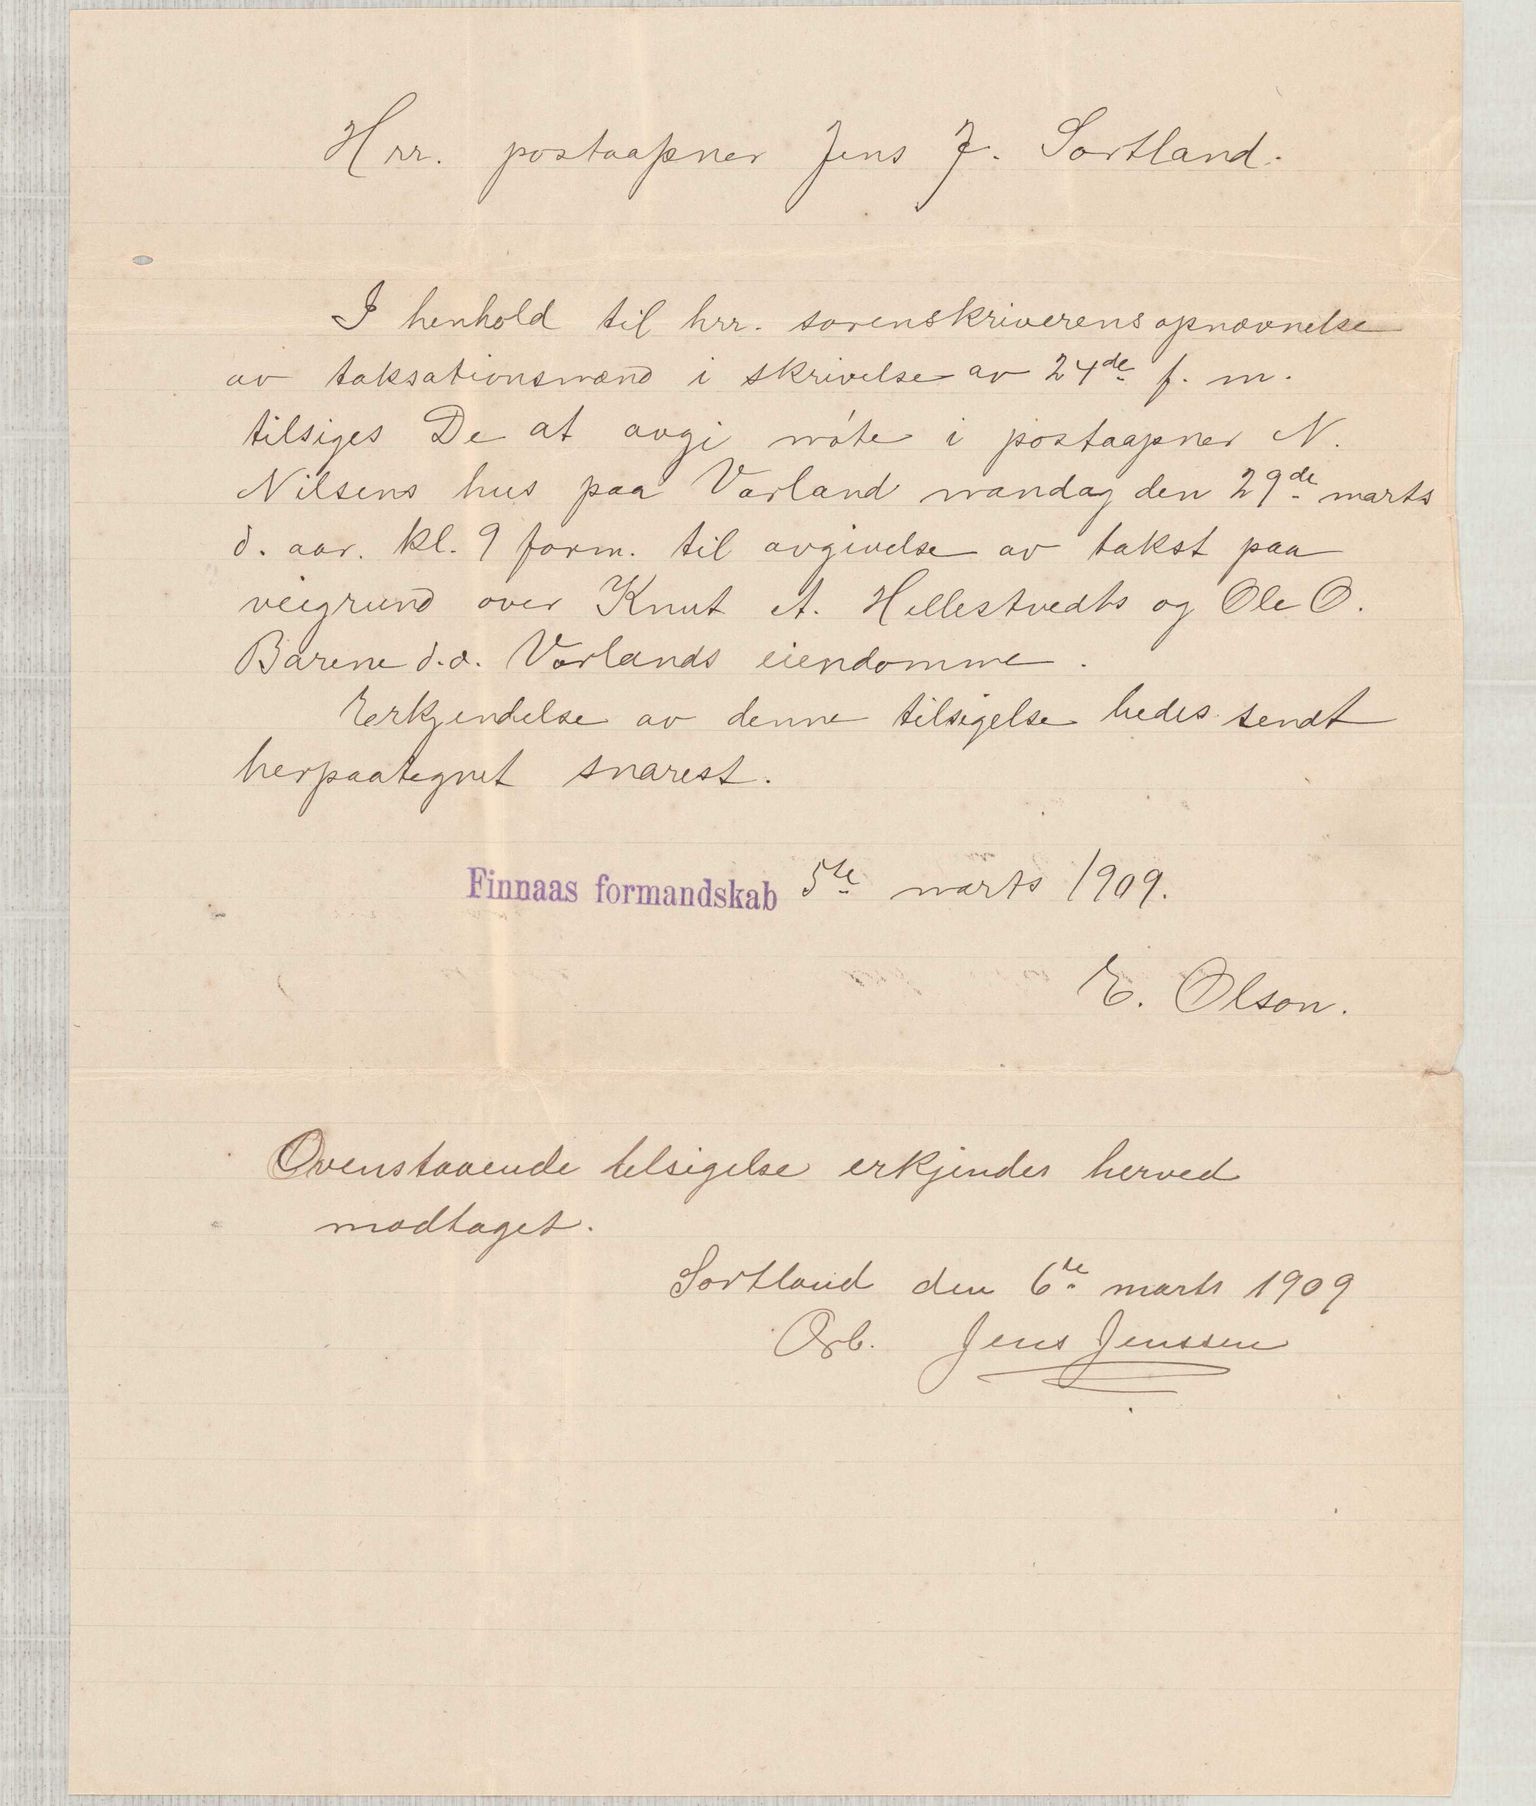 Hrr. postaapner Jens J. Sortland.
I henhold til hrr. sorenskriverens opnævnelse
av taksationsmænd i skrivelse av 24de f. m.
tilsiges De at avgi møte i postaapner N.
Nilsens hus paa Vorland mandag den 29de marts
d. aar. kl. 9 form. til avgivelse av takst paa
veigrund over Knut A. Hillestvedts og Ole O.
Barene d.o. Vorlands eiendomme.
Erkjendelse av denne tilsigelse bedes sendt
herpaategnet snarest.
Finnaas formandskab 5te marts 1909.
E. Olson.
Ovenstaaende tilsigelse erkjendes herved
modtaget.
Sortland den 6te marts 1909
Ørb. Jens Jenssen